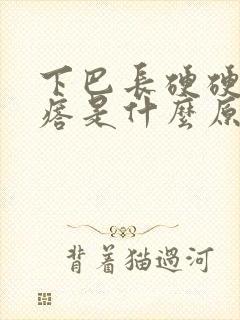 下巴長硬硬
痞是什麼原
背着猫過河